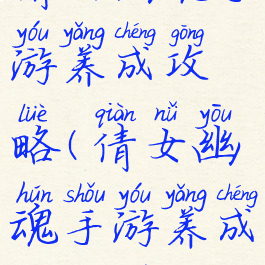 yóu yǎng chéng gōng
游养成攻
lüè qiàn nǚ yōu
略(倩女幽
hún shǒu yóu yǎng chéng
魂手游养成